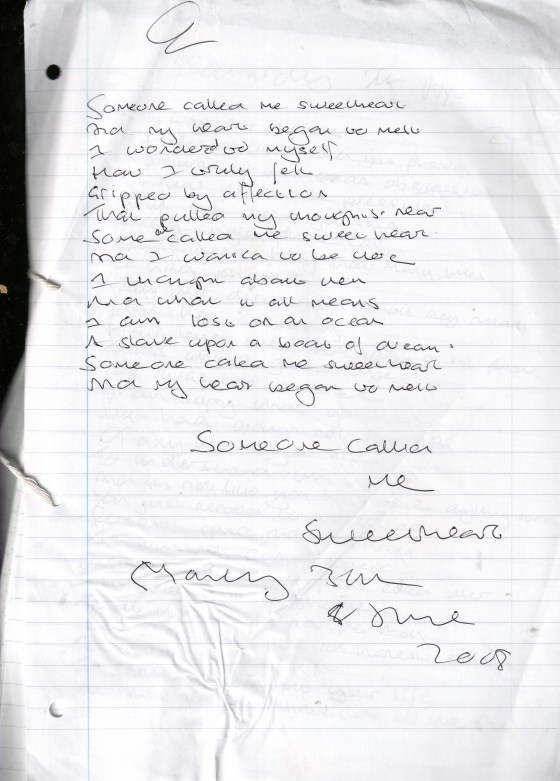 Someone called me sweetheart
And my heart began to melt
I wondered to myself
How I truly felt
Gripped by affection
That pulled my thoughts near
Someone called me sweetheart
And I wanted to be there
I thought about her
And what it all means
I am lost on an ocean
A slave upon a boat of dream.
Someone called me sweetheart
And my heart began to melt
Someone called
me
sweetheart
June
2008